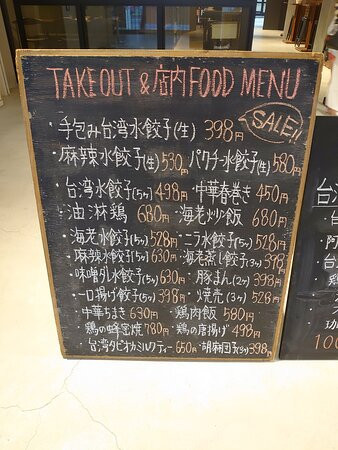 TAKEOUT & 店内 FOOD MENU
SALE!!
・手包み台湾水餃子(生) 398円
・麻辣水餃子(生)530円 パクチー水餃子(生)580円
・台湾水餃子(5ヶ)498円 ・中華春巻き 450円
・油淋鶏 680円 ・海老炒飯 680円
・海老水餃子(5ヶ)528円 ・ニラ水餃子(5ヶ)528円
・麻辣水餃子(5ヶ)630円 ・海老蒸し餃子(3ヶ)398円
・味噌ダレ水餃子(5ヶ)630円 ・豚まん(2ヶ)398円
・一口揚げ餃子(5ヶ)398円 ・焼売(3ヶ)528円
・中華ちまき 630円 ・鶏肉飯 580円
・鶏の蜂蜜焼 780円 ・鶏の唐揚げ 498円
・台湾タピオカミルクティー 650円 ・胡麻団子(3ヶ)398円
台
・台
・阿
・台
鶏
100